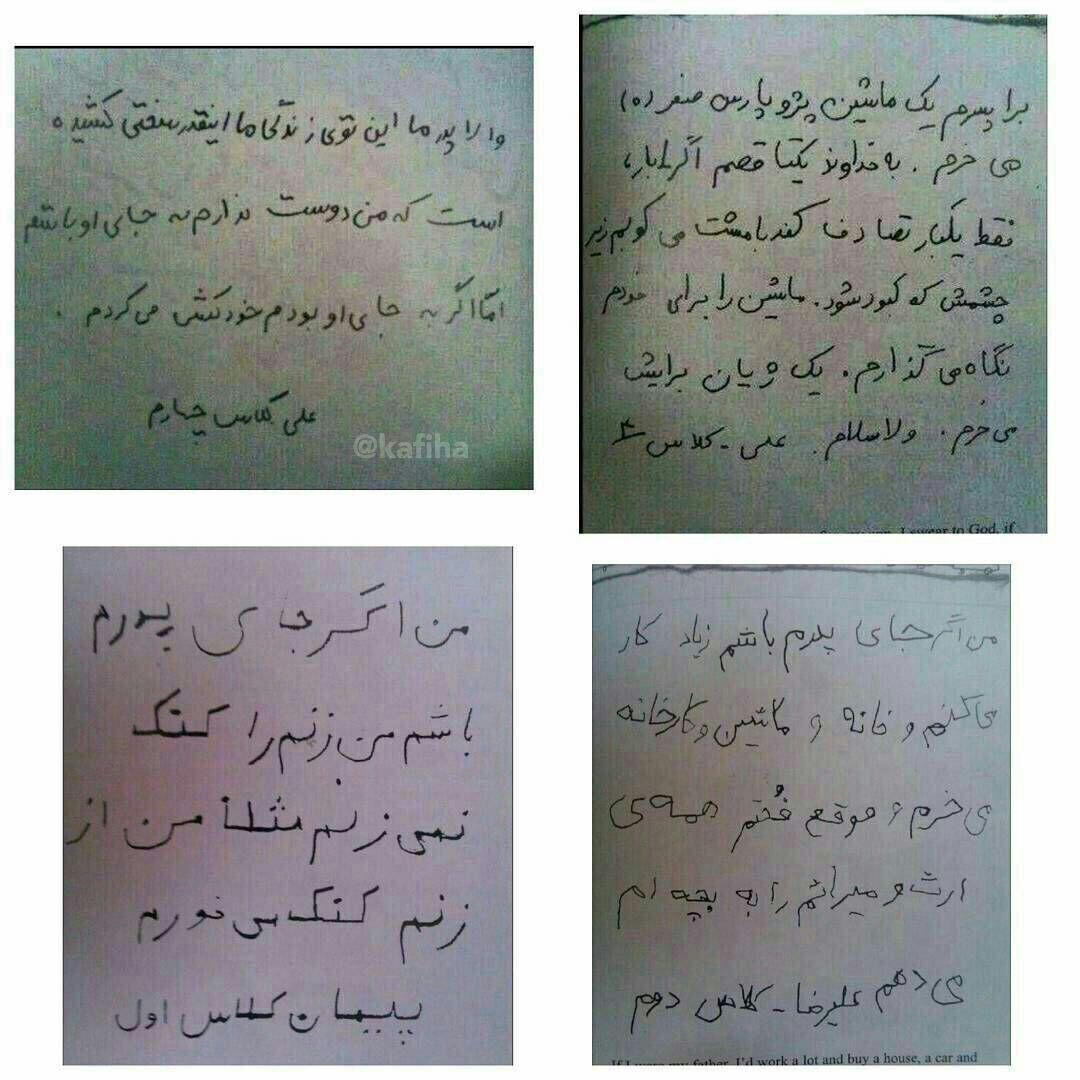 ما این توی زندگی ما اینقدر سختی کشیده
است که من دوست ندارم به جای او باشم
امّا اگر به جای او بودم خودکشی می کردم .
علی کلاس چهارم
@kafiha
برا پسرم یک ماشین پژو پارس صفر
می خرم . به خداوند یکتا قصم اگر ۱بار،
فقط یکبار تصادف کند با مشت می کوبم زیر
چشمش که کبود شود . ماشین را برای خودم
نگاه می گذارم . یک ویان برایش
می خرم . ولاسلام علی - کلاس ۴
I swear to God, if
من اگر جای پدرم
باشم من زنم را کتک
نمی زنم مثلاً من از
زنم کتک می خورم
پیمان کلاس اول
من اگر جای پدرم باشم زیاد کار
می کنم و خانه و ماشین و کارخانه
می خرم و موقع فُتم همه ی
ارث و میراثم را به بچه ام
می دهم علیرضا - کلاس دوم
If I were my father, I'd work a lot and buy a house, a car and